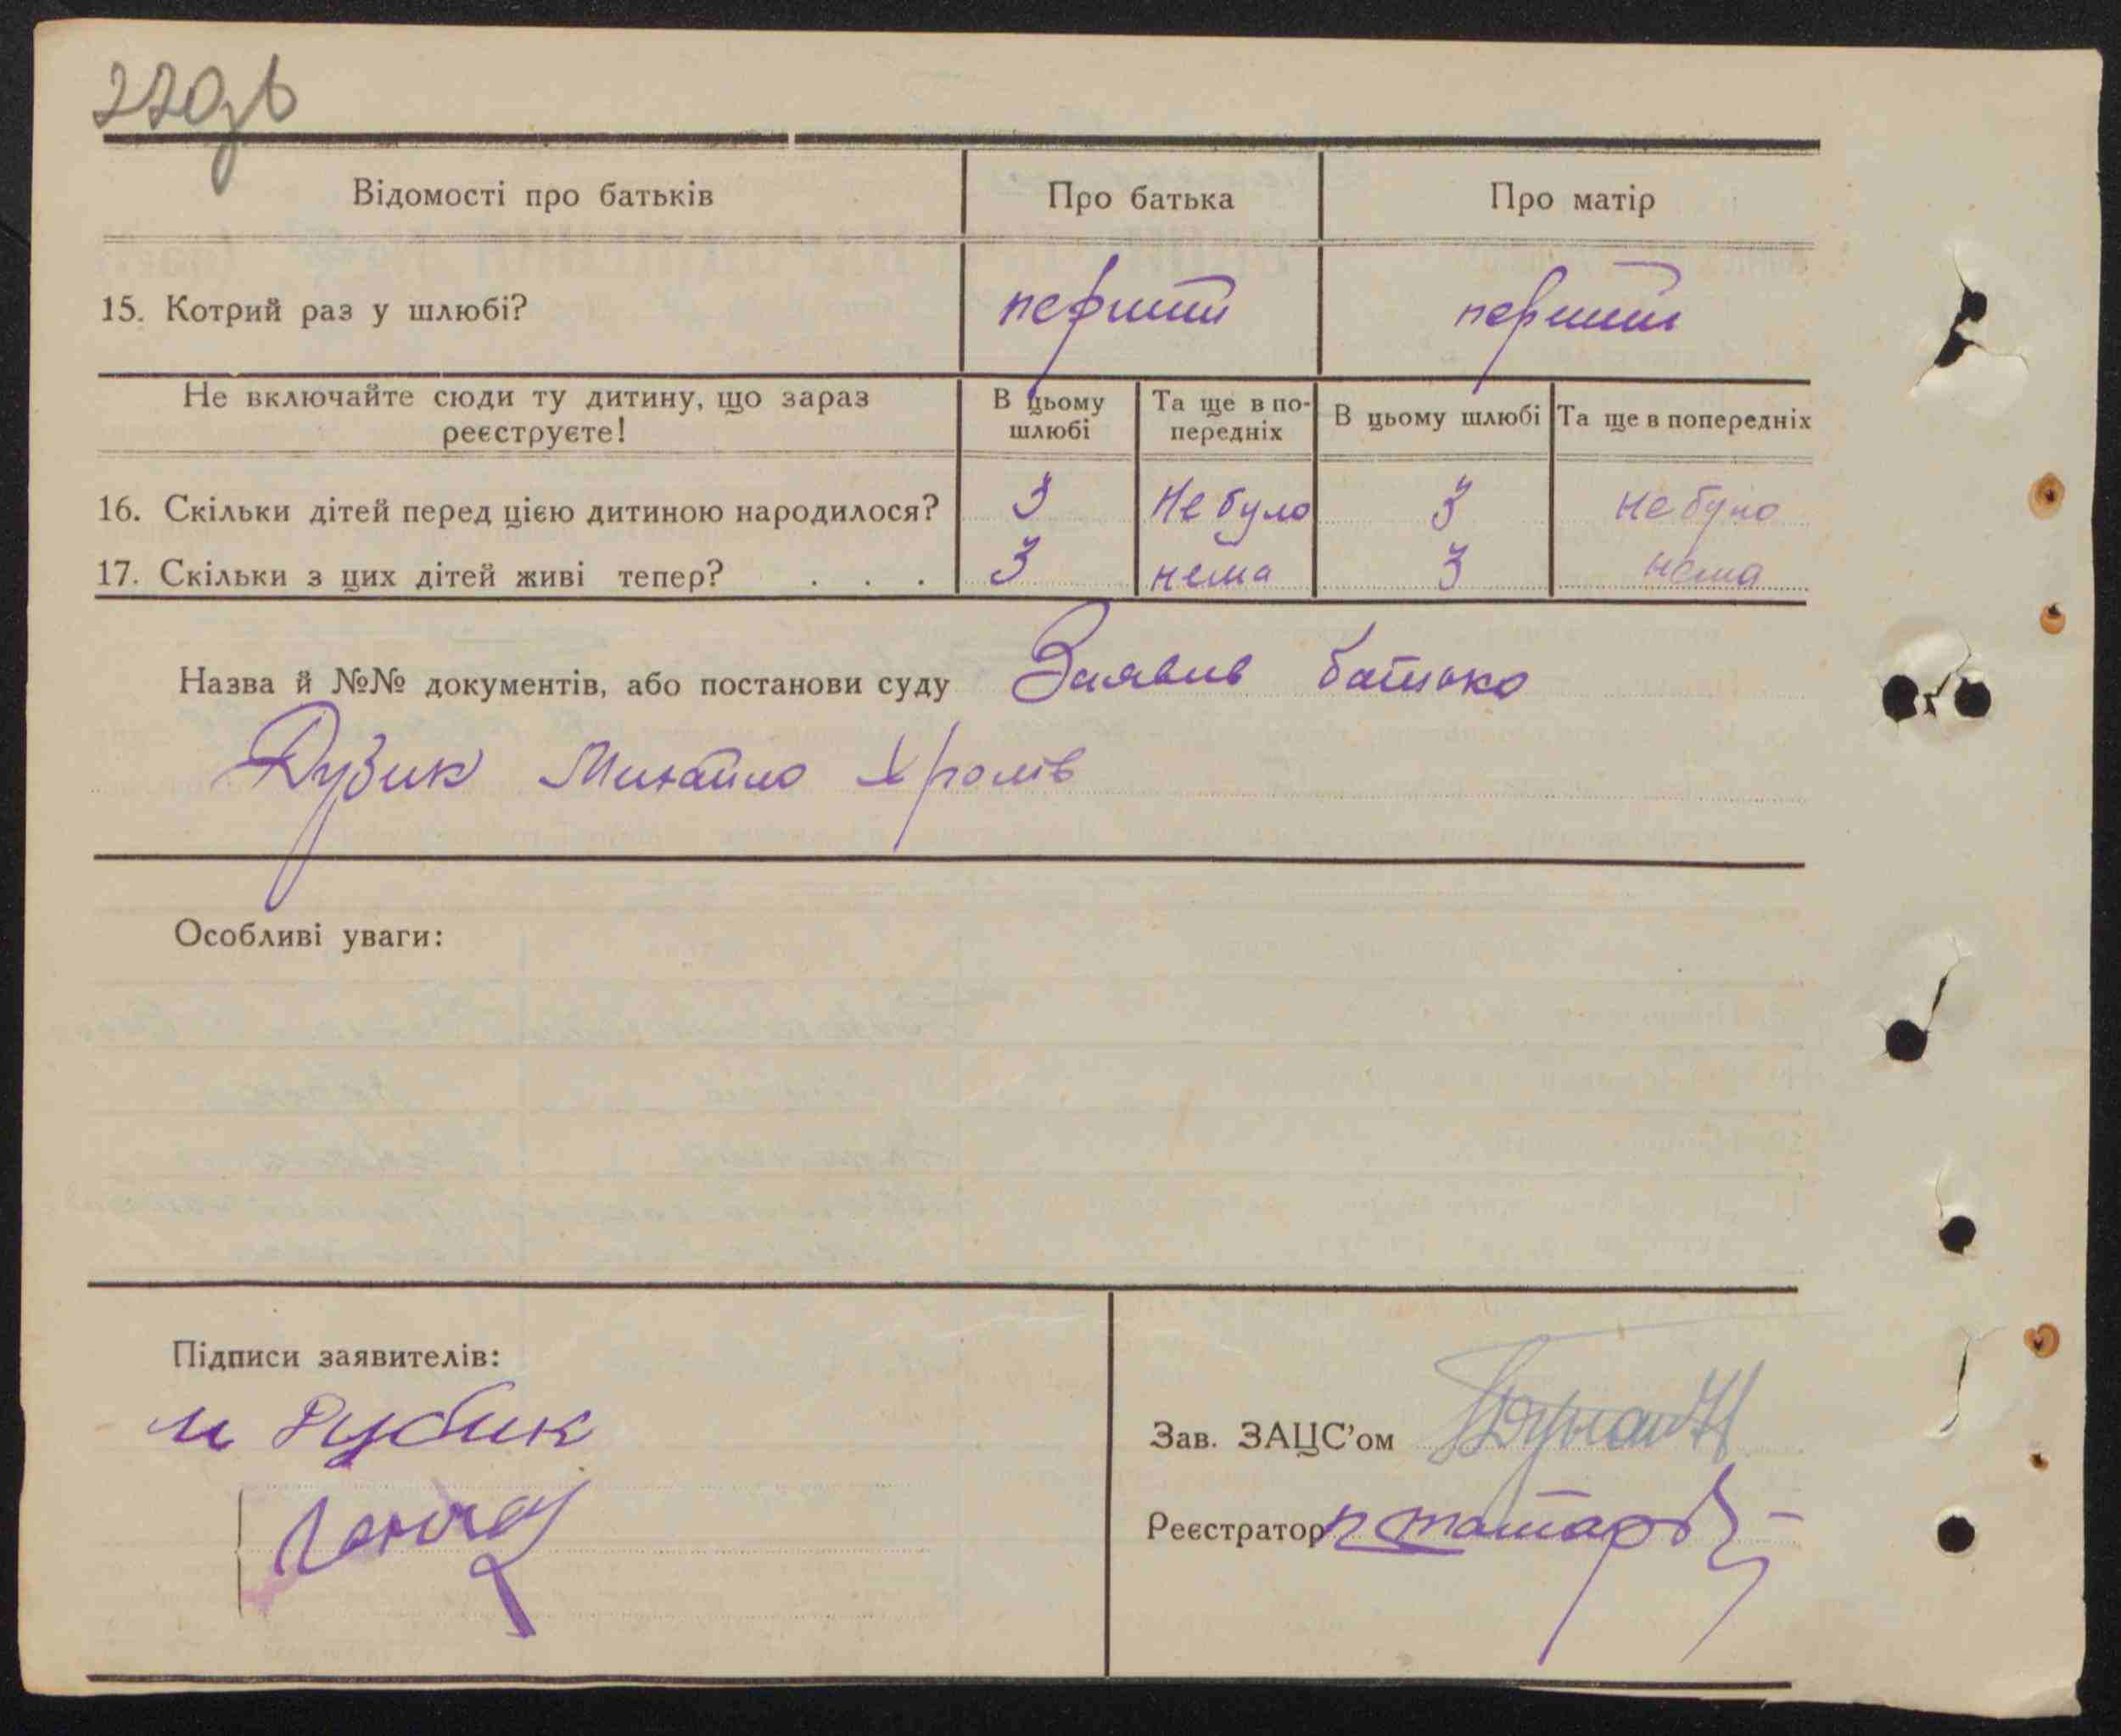 220зв
Відомості про батьків
Про батька
Про матір
15. Котрий раз у шлюбі?
перший
перший
Не включайте сюди ту дитину, що зараз
реєструєте!
В цьому
шлюбі
Та ще в по-
передніх
В цьому шлюбі
Та ще в попередніх
16. Скільки дітей перед цією дитиною народилося?
3
Не було
3
не було
17. Скільки з цих дітей живі тепер? . . .
3
нема
3
нема
Назва й №№ документів, або постанови суду Заявив батько
Михайло Хролів
Особливі уваги:
Підписи заявителів:
Зав. ЗАЦС'ом
Реєстратор